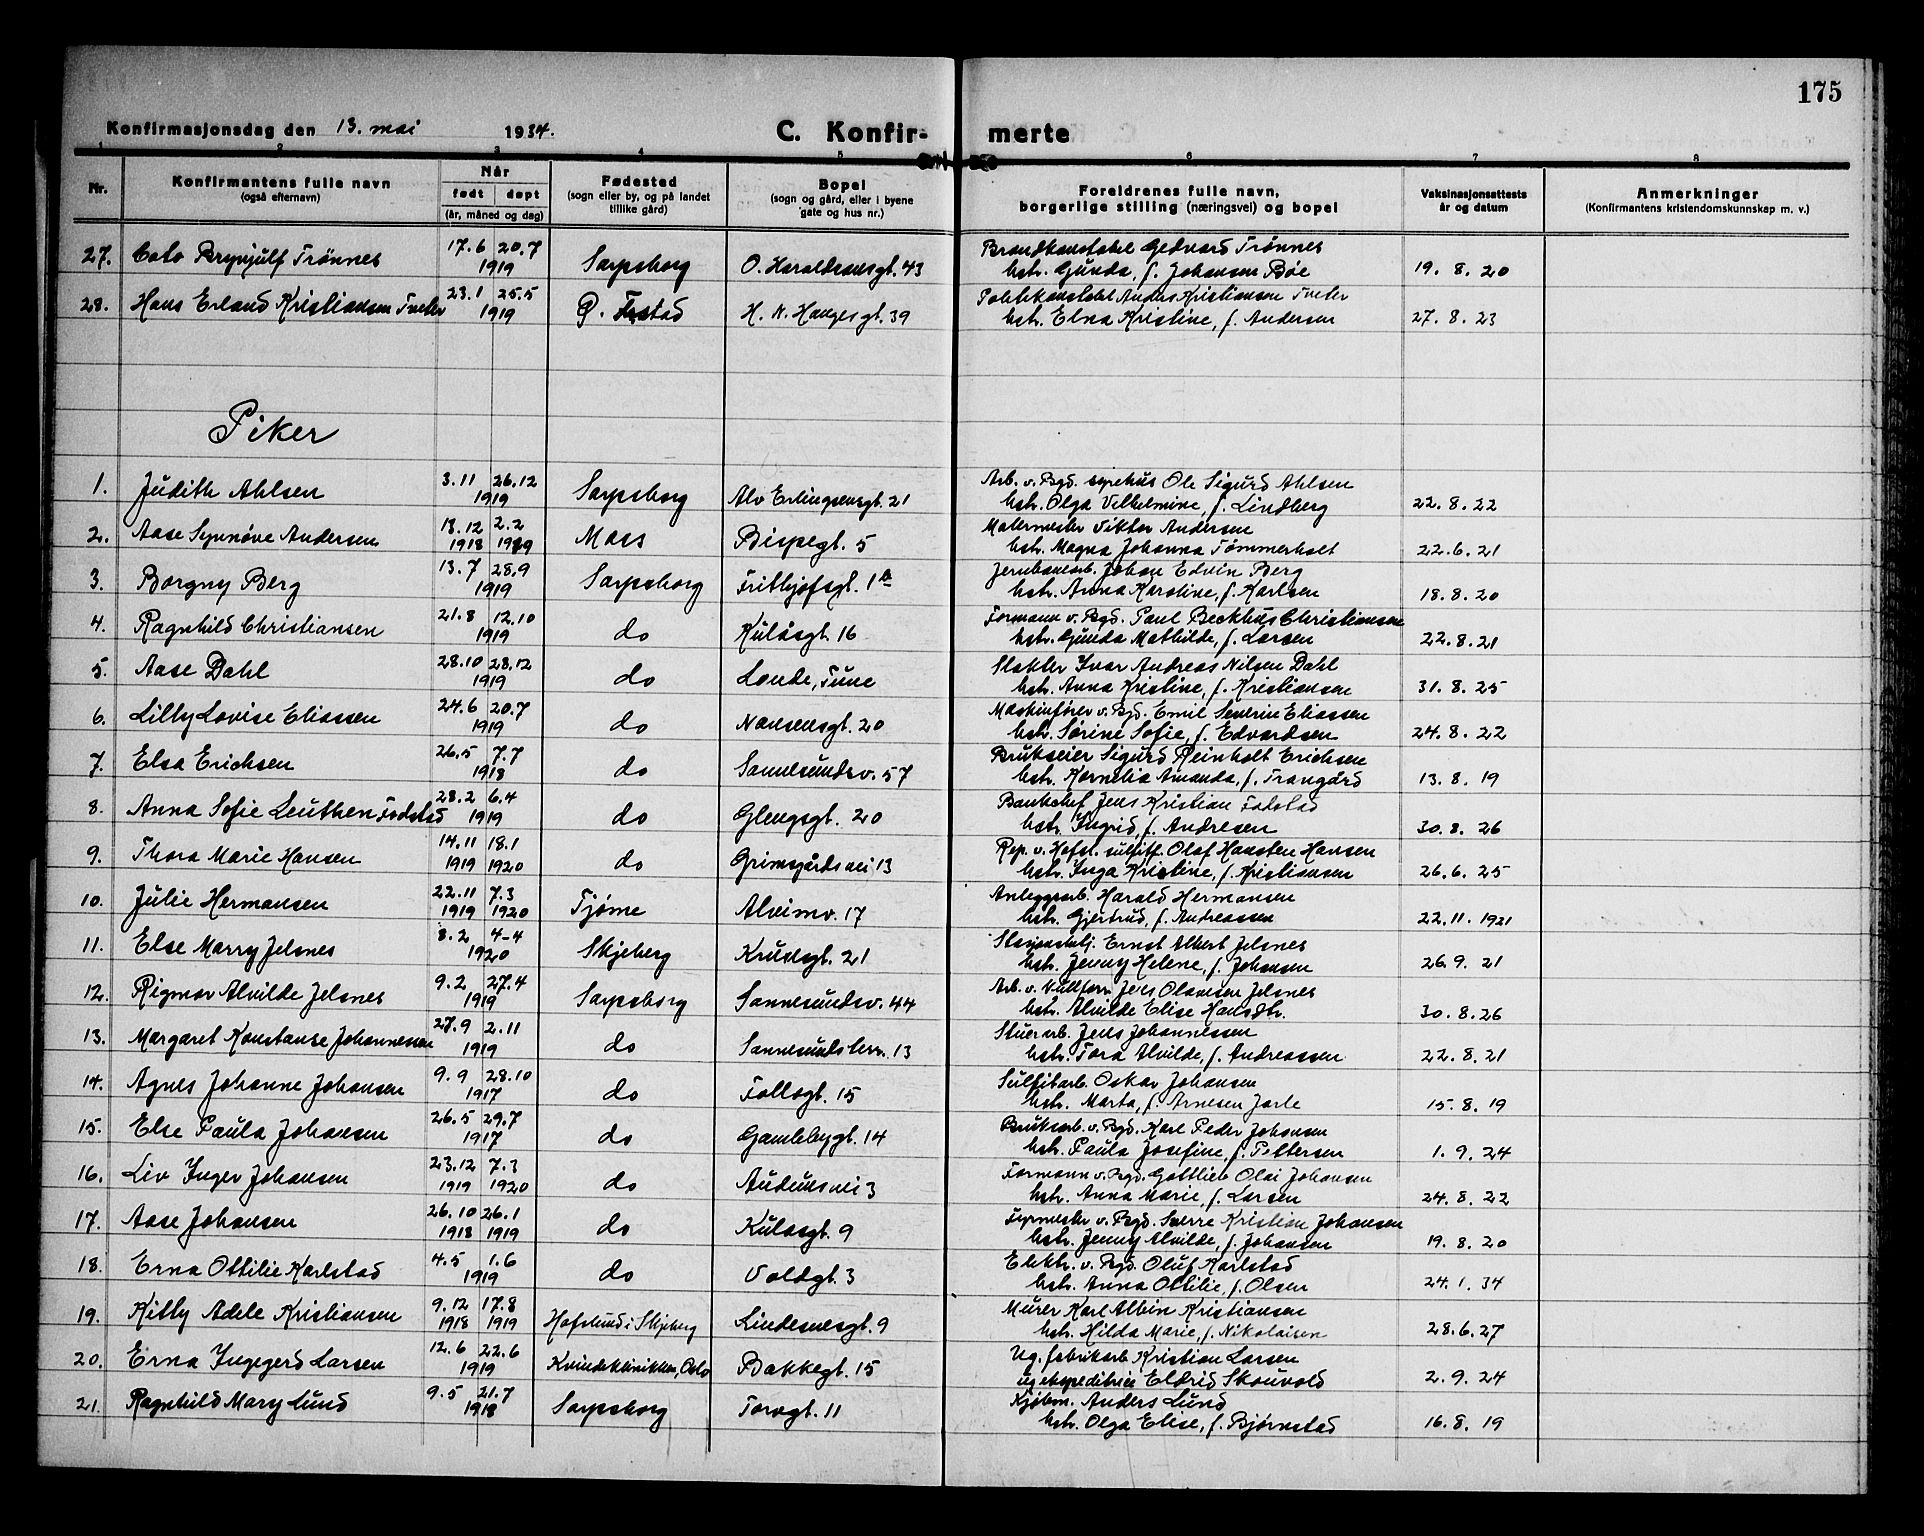 175
Konfirmasjonsdag den 13. mai 1934. C. Konfir- merte
1 2 3 4 5 6 7 8
Nr. Konfirmantens fulle navn (også efternavn) Når født døpt (år, måned og dag) Fødested (sogn eller by, og på landet tillike gård) Bopel (sogn og gård, eller i byene gate og hus nr.) Foreldrenes fulle navn, borgerlige stilling (næringsvei) og bopel Vaksinasjonsattests år og datum Anmerkninger (Konfirmantens kristendomskunnskap m. v.)
27. Cato Brynjulf Trønnes 17.6 20.7 1919 Sarpsborg O. Haraldsensgt. 43 Brandkonstabel Gedvard Trønnes
hstr. Gunda, f. Johansen Bøe 19. 8. 20
28. Hans Erland Kristiansen Tveter 23.1 25.5 1919 G. Fr.stad H. N. Haugesgt. 39 Politikonstabel Anders Kristiansen Tveter
hstr. Elna Kristine, f. Andersen 27. 8. 23
Piker
1. Judith Ahlsen 3.11 26.12 1919 Sarpsborg Alv Erlingsensgt. 21 Arb. v. Bgd. sprehus Ole Sigurd Ahlsen
hstr. Olga Vilhelmine, f. Lindberg 22. 8. 22
2. Aase Synnøve Andersen 18.12 1918 2.2 1919 Moss Bispegt. 5 Malermester Viktor Andersen
hstr. Magna Johanna Tømmerholt 22. 6. 21
3. Borgny Berg 13.7 28.9 1919 Sarpsborg Frithjofsgt. 1 b Jernbanearb. Johan Edvin Berg
hstr. Anna Karoline, f. Karlsen 18. 8. 20
4. Ragnhild Christiansen 21.8 12.10 1919 do Kulåsgt. 16 Formann v. Bgd. Paul Beckhus Christiansen
hstr. Gunda Mathilde, f. Larsen 22. 8. 21
5. Aase Dahl 28.10 28.12 1919 do Lande, Tune Slakter Ivar Andreas Nilsen Dahl
hstr. Anna Kristine, f. Kristiansen 31. 8. 25
6. Lilly Lovise Eliassen 24.6 20.7 1919 do Nansensgt. 20 Maskinfører v. Bgd. Emil Severin Eliassen
hstr. Sørine Sofie, f. Edvardsen 24. 8. 22
7. Elsa Erichsen 26.5 7.7 1918 do Sannesundsv. 57 Brukseier Sigurd Reinholt Erichsen
hstr. Kornelia Amanda, f. Trangård 13. 8. 19
8. Anna Sofie Leuthen Fodstad 28.2 6.4 1919 do Glengsgt. 20 Banksjef Jens Kristian Fodstad
hstr. Ingrid, f. Andresen 30. 8. 26
9. Thora Marie Hansen 14.11 1919 18.1 1920 do Grimsgårdsvei 13 Rep. v. Hafsl. sulfitf. Olaf Hansten Hansen
hstr. Inga Kristine, f. Kristiansen 26. 6. 25
10. Julie Hermansen 22.11 1919 7.3 1920 Tjøme Alvimv. 17 Anleggsarb. Harald Hermansen
hstr. Gjertrud, f. Andreassen 22. 11. 1921
11. Else Marry Jelsnes 8.2 4-4 1920 Skjeberg Krudsgt. 21 Stasjonsbtj. Ernst Albert Jelsnes
hstr. Jenny Helene, f. Johansen 26. 9. 21
12. Rigmor Alvilde Jelsnes 9.2 27.4 1919 Sarpsborg Sannesundsv. 44 Arb. v. Nullforr. Jens Olausen Jelsnes
hstr. Alvilde Elise Hansdtr. 30. 8. 26
13. Margaret Konstanse Johannessen 27.9 2.11 1919 do Sannesundsterr. 13 Stuerarb. Jens Johannessen
hstr. Tora Alvilde, f. Andreassen 22. 8. 21
14. Agnes Johanne Johansen 9.9 28.10 1917 do Follogt. 15 Sulfitarb. Oskar Johansen
hstr. Marta, f. Arnesen Jarle 15. 8. 19
15. Else Paula Johansen 26.5 29.7 1917 do Gamlebygt. 14 Bruksarb. v. Bgd. Karl Peder Johansen
hstr. Paula Josefine, f. Pettersen 1. 9. 24
16. Liv Inger Johansen 23.12 1919 7.3 1920 do Audunsvei 3 Formann v. Bgd. Gottlieb Olai Johansen
hstr. Anna Marie, f. Larsen 24. 8. 22
17. Aase Johansen 26.10 1918 26.1 1919 do Kulåsgt. 9 Fyrmester v. Bgd. Sverre Kristian Johansen
hstr. Jenny Alvilde, f. Johansen 19. 8. 20
18. Erna Ottilie Karlstad 4.5 1.6 1919 do Voldgt. 3 Elektr. v. Bgd. Oluf Karlstad
hstr. Anna Ottilie, f. Olsen 24. 1. 34
19. Kitty Adele Kristiansen 9.12 1918 17.8 1919 Hafslund i Skjeberg Lindesnesgt. 9 Murer Karl Albin Kristiansen
hstr. Hilda Marie, f. Nikolaisen 28. 6. 27
20. Erna Ingegerd Larsen 12.6 22.6 1919 Kvindeklinikken, Oslo Bakkegt. 15 Ug. fabrikarb Kristian Larsen
ug ekspeditrice Eldrid Skouvold 2. 9. 24
21. Ragnhild Mary Lund 9.5 21.7 1918 Sarpsborg Torvgt. 11 Kjøbm. Anders Lund
hstr. Olga Elise, f. Bjørnstad 16. 8. 19